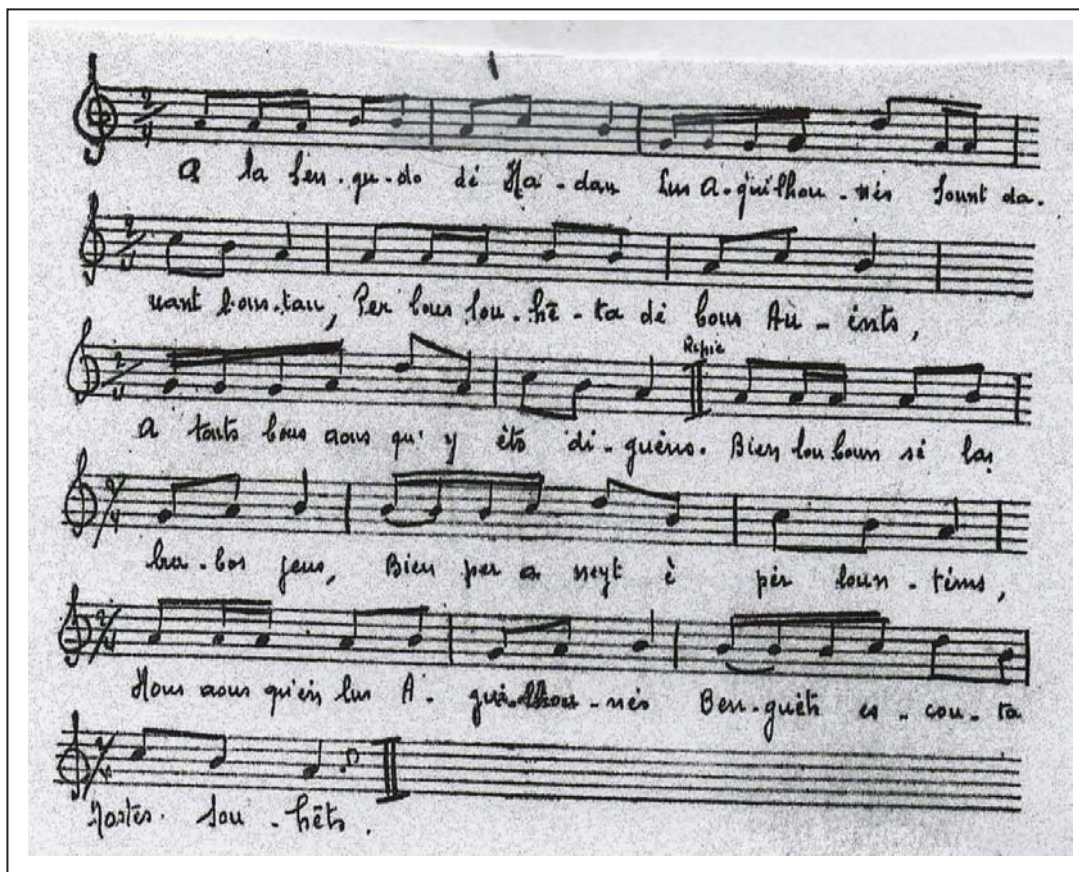 A la ben-gu-do dé Na-dau Lus A-guilhou-nés Sount da-
uant bous-tau, Per bous sou-hê-ta dé bous Au-ents,
Répic
A touts bous aous qu'y êts di-guens. Bien lou boun sé las
bra-bos gens, Bien per a neyt è pèr loun-téms,
Nous aous qu'èm lus A-guilhou-nés Ben-guêts es-cou-ta
Nostés. Sou-hêts.